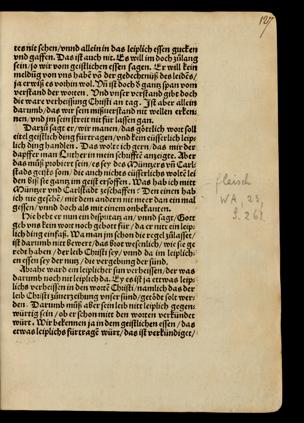 127
tes nit sehen/vnnd allein in das leiplich essen gucken
vnd gaffen. Das ist auch nit. Es will im doch zůlang
sein/so wir vom geistlichen essen sagen. Er will kein
meldũg von vns habẽ vñ der gedechtnüß des leidẽs/
ja er wiß es vorhin wol. Vñ ist doch ď gantz span vom
verstand der worten. Vnd vnser verstand gibt doch
die ware verheissung Christi an tag. Ist aber allein
darumb/das wir sein mißuerstand nit wellen erken-
nen/vnd jm sein streit nit für lassen gan.
Darzů sagt er/wir manen/das götlich wort soll
eitel geistlich ding fürtragen/vnd kein eüsserlich leip-
lich ding handlen. Das wolte ich gern/das mir der
dapffer man Luther in mein schrifftẽ anzeigt. Aber
das můß probiert sein/es sey des Müntzers vñ Carl-
stads geists son/die auch nichts eüsserlichs woltẽ lei
den biß sie gantz im geist ersoffen. Was hab ich mitt
Müntzer vnd Carlstadt zeschaffen? Den einen hab
ich nie gesehẽ/mit dem andern nit meer dan ein mal
gessen/vnnd doch als mit einem onbekanten.
Hie hebt er nun ein disputatz an/vnnd sagt/Gott
geb vns kein wort noch gebott für/da er nit ein leip-
lich ding einfaß. Wa man jm schon die regel zůlasset/
ist darumb nit bewert/das brot wesenlich/wie sie ge
redt haben/der leib Christi sey/vnnd da im leiplich-
en essen sey der nutz/die vergebung der sünd.
Abrahẽ ward ein leiplicher sun verheissen/der was
darumb noch nit leiplich da. Ey es ist ja etwas leip-
lichs verheissen in den wortẽ Christi/namlich das der
leib Christi zůnerzeihung vnser sünd/getödt solt wer-
den. Darumb můß aber sein leib nitt leiplich gegen-
würtig sein/ob er schon mitt den worten verkündet
würt. Wir bekennen ja in dem geistlichen essen/das
etwas leiplichs fürtragẽ würt/das ist verkündiget/
fleisch
WA, 23,
S. 261